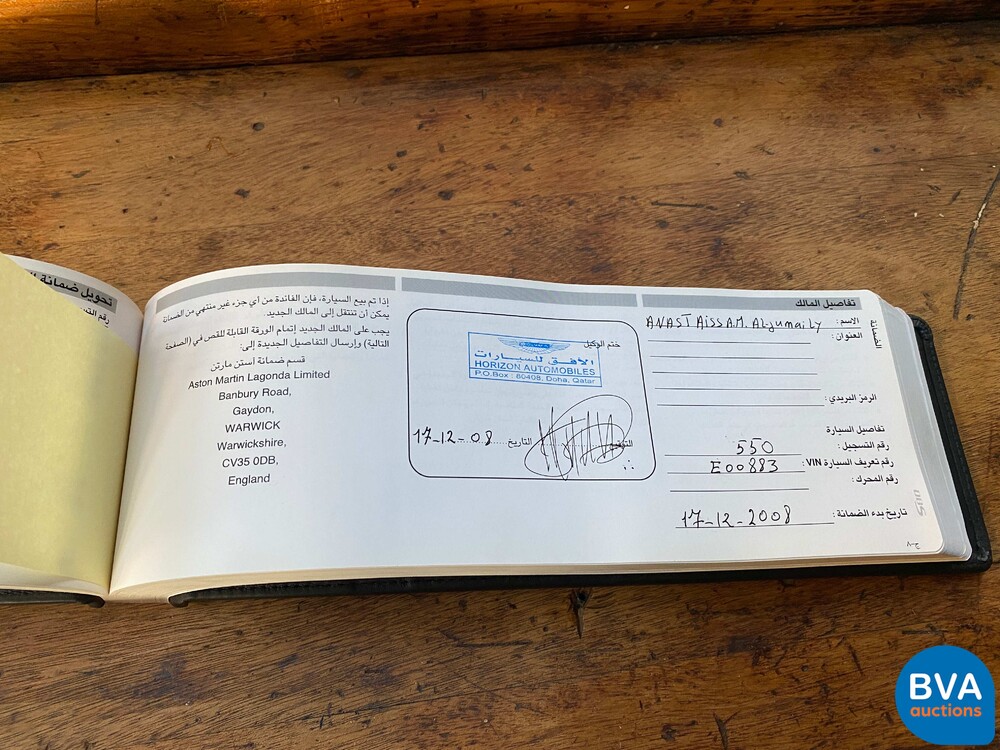 تحويل ضمانة
إذا تم بيع السيارة، فإن الفائدة من أي جزء غير منتهي من الضمانة
يمكن أن تنتقل إلى المالك الجديد.
يجب على المالك الجديد إتمام الورقة القابلة للقص في (الصفحة
التالية) وإرسال التفاصيل الجديدة إلى:
قسم ضمانة أستن مارتن
Aston Martin Lagonda Limited
Banbury Road,
Gaydon,
WARWICK
Warwickshire,
CV35 0DB,
England
ختم الوكيل
الأفق للسيارات
HORIZON AUTOMOBILES
P.O.Box : 80408, Doha, Qatar
التاريخ 17-12-08
تفاصيل المالك
الاسم: ANAST AISSAM. AL-jumaily
العنوان:
الرمز البريدي:
تفاصيل السيارة
رقم التسجيل: 550
رقم تعريف السيارة VIN: E00883
رقم المحرك:
تاريخ بدء الضمانة: 17-12-2008
الضمانة
٢-٧
BVA
auctions